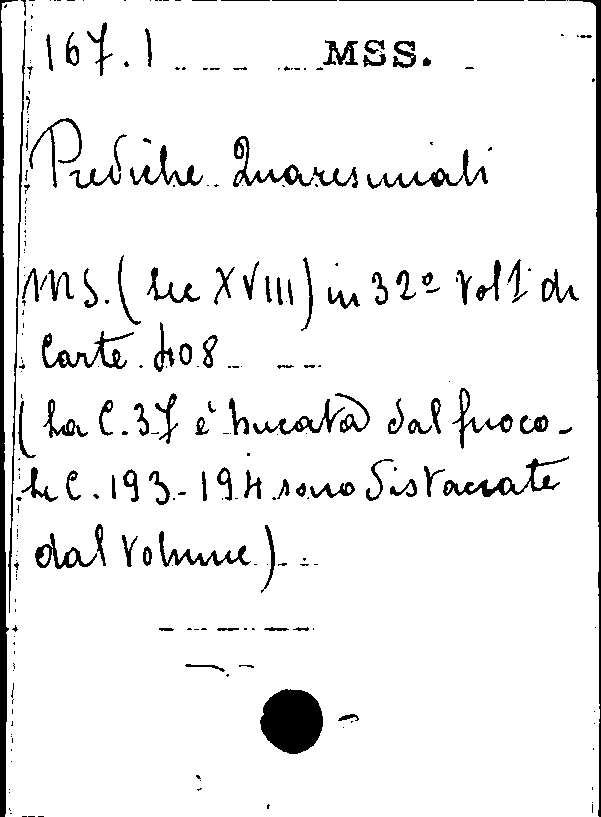 167.1 MSS.
Prediche Quaresimali
MS. (sec XVIII) in 32º Vol 1 di
Carte 408
(La C. 37 è bucata dal fuoco -
le C. 193-194 sono distaccate
dal Volume)